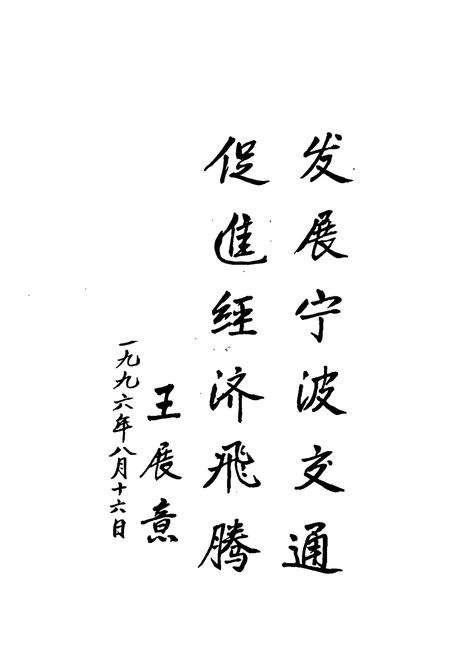 发展宁波交通
促進經济飛腾
王展意
一九九六年八月十六日